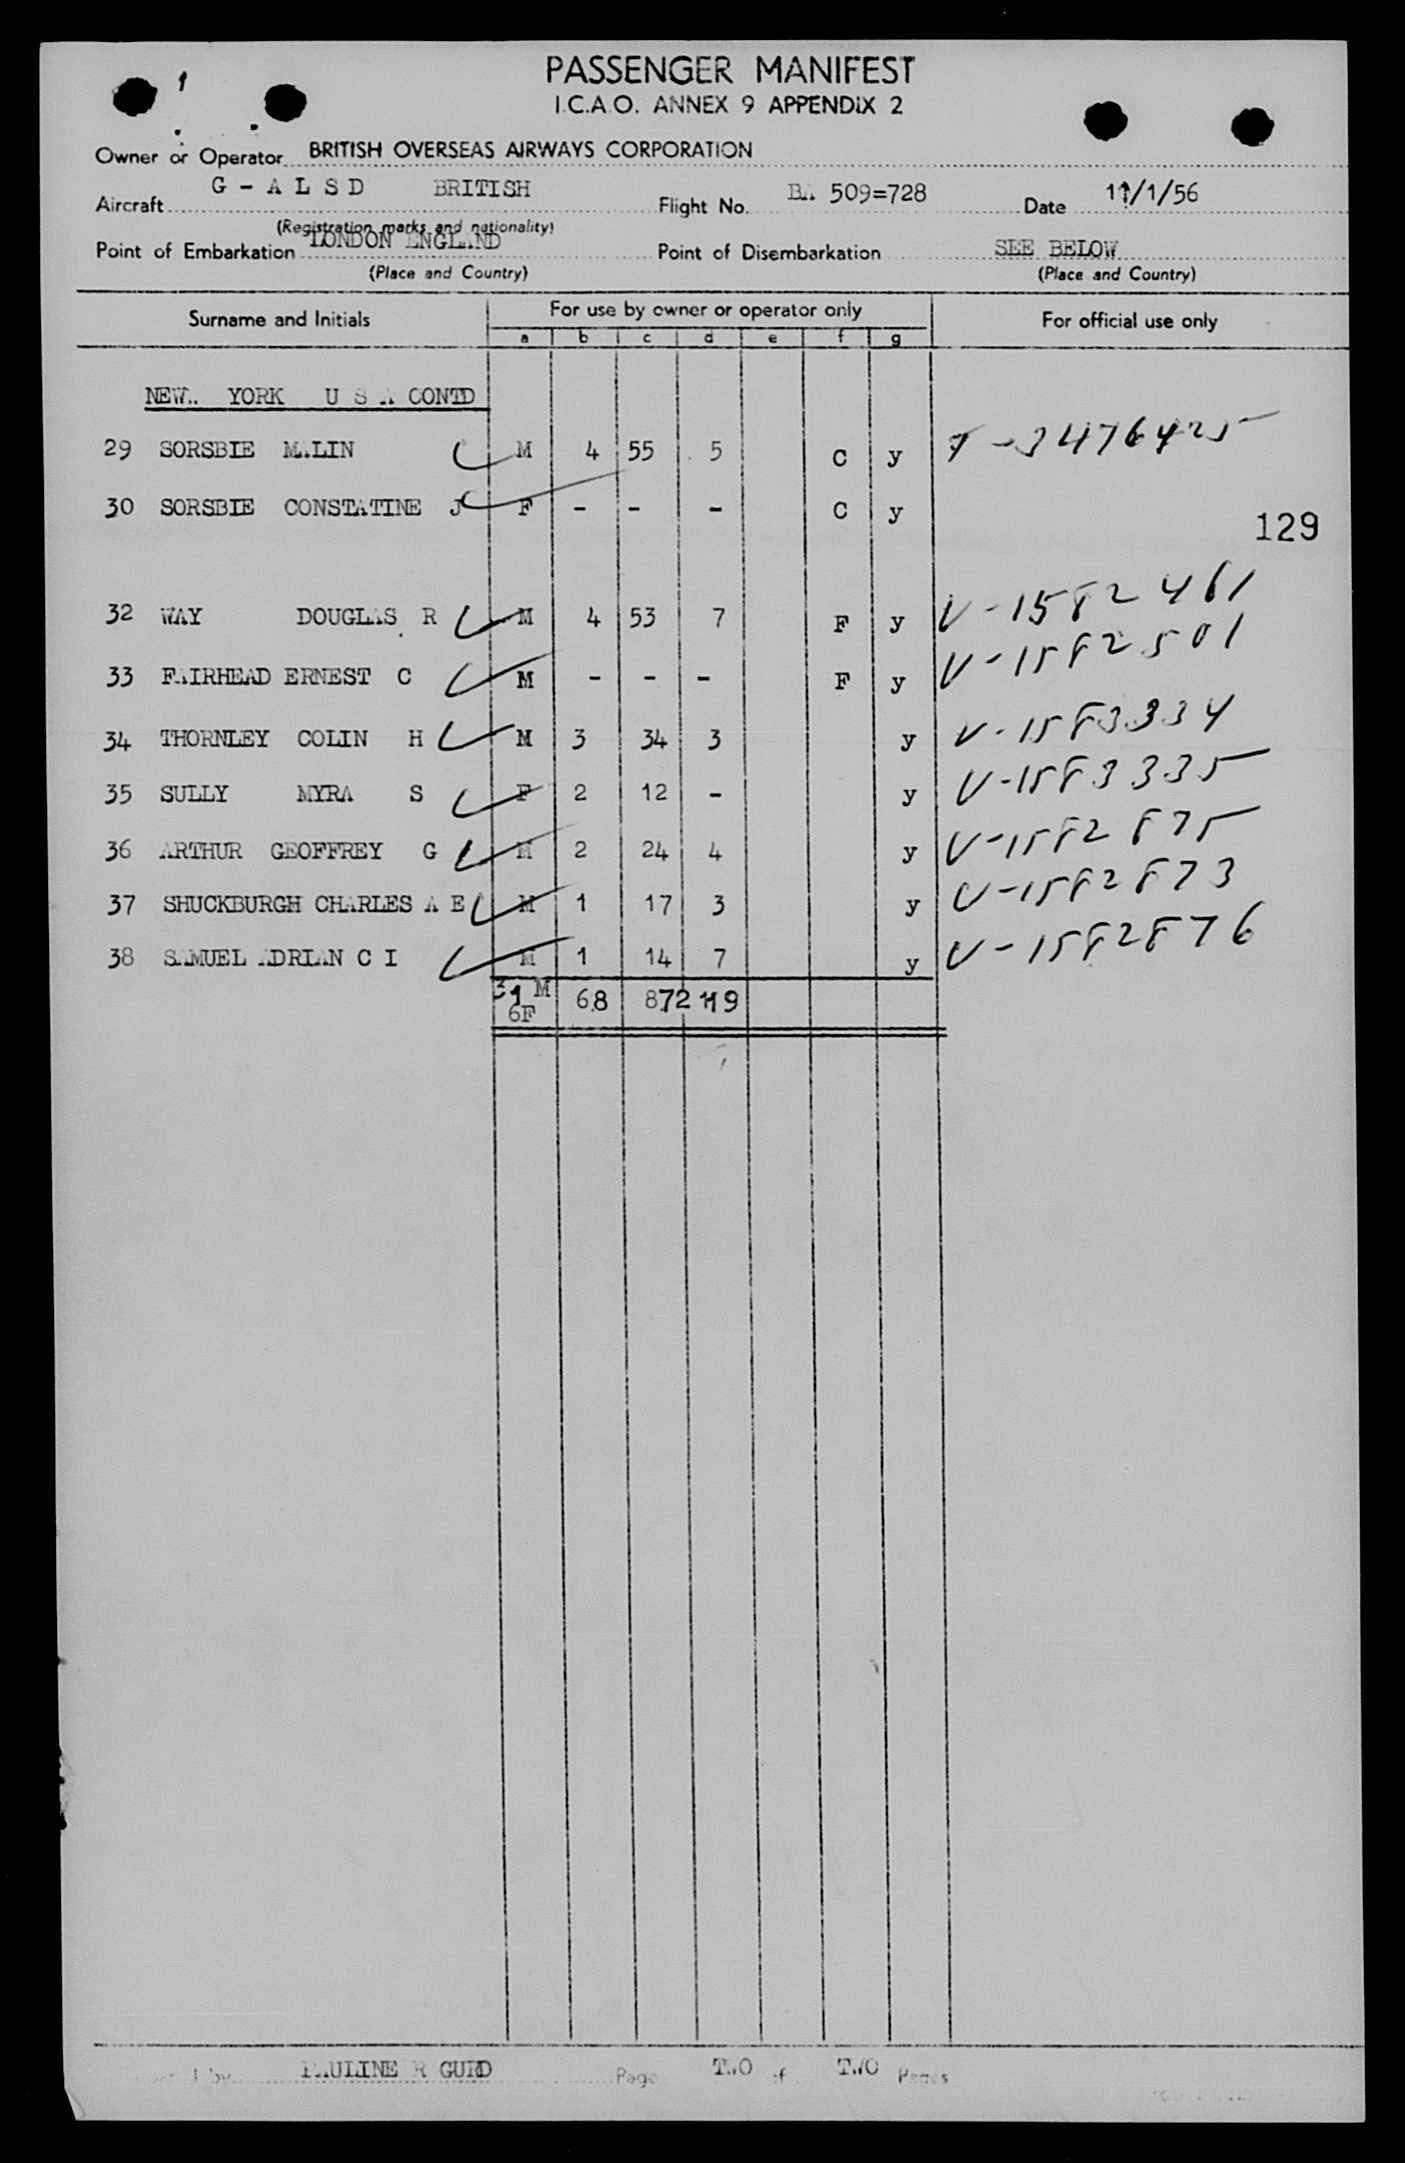 1
PASSENGER MANIFEST
I.C.A.O. ANNEX 9 APPENDIX 2
Owner or Operator BRITISH OVERSEAS AIRWAYS CORPORATION
Aircraft G - A L S D BRITISH Flight No. BA 509=728 Date 11/1/56
(Registration marks and nationality)
Point of Embarkation LONDON ENGLAND Point of Disembarkation SEE BELOW
(Place and Country) (Place and Country)
Surname and Initials For use by owner or operator only For official use only
a b c d e f g
NEW.. YORK U S A CONTD
29 SORSBIE MALIN M 4 55 5 C y T-3476425
30 SORSBIE CONSTATINE J F - - - C y
129
32 WAY DOUGLAS R M 4 53 7 F y V-1582461
33 FAIRHEAD ERNEST C M - - - F y V-1582501
34 THORNLEY COLIN H M 3 34 3 y V-1583334
35 SULLY MYRA S F 2 12 - y V-1583335
36 ARTHUR GEOFFREY G M 2 24 4 y V-1582875
37 SHUCKBURGH CHARLES A E M 1 17 3 y V-1582873
38 SAMUEL ADRIAN C I M 1 14 7 y V-1582876
31 M 68 872 119
6F
by PAULINE R GUID Page TWO of TWO Pages